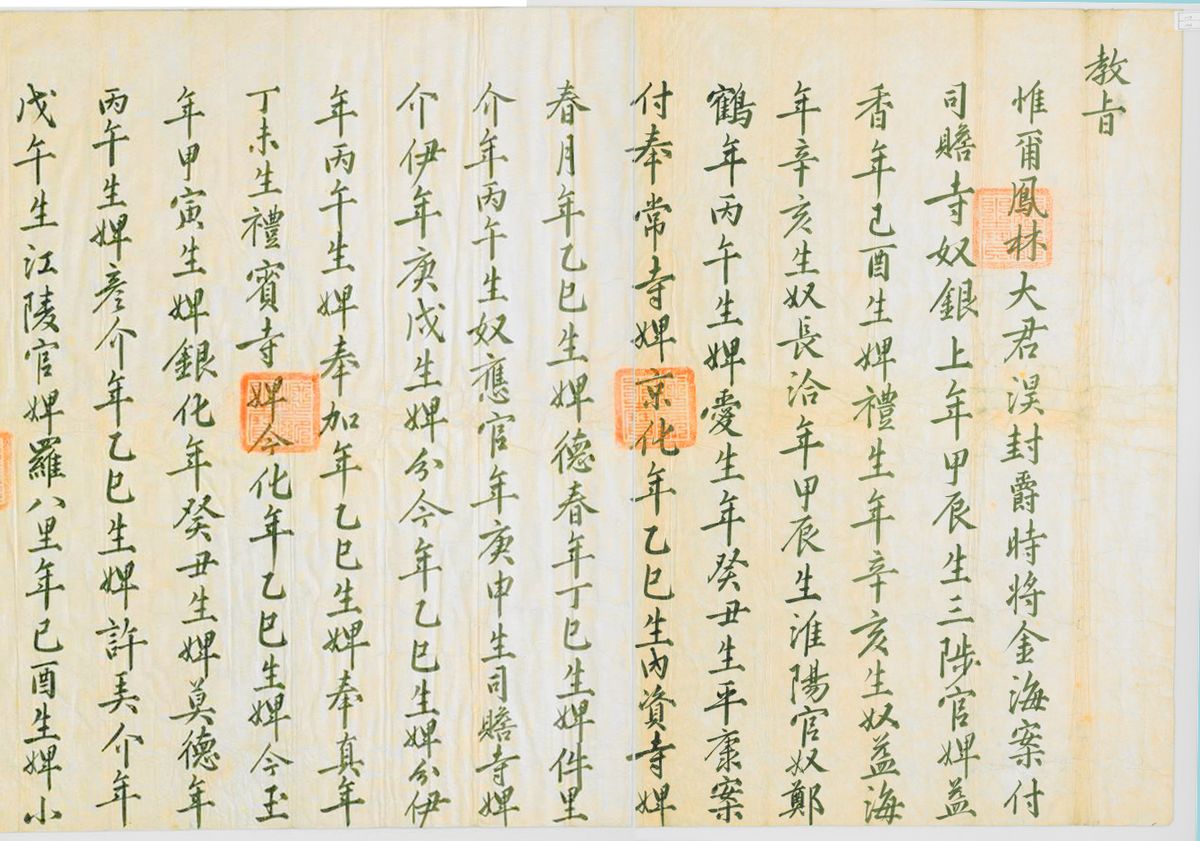 教旨
惟爾鳳林大君淏封爵時將金海案付
司贍寺奴銀上年甲辰生三陟官婢益
香年己酉生婢禮生年辛亥生奴益海
年辛亥生奴長洽年甲辰生淮陽官奴鄭
鶴年丙午生婢愛生年癸丑生平康案
付奉常寺婢京化年乙巳生內資寺婢
春月年乙巳生婢德春年丁巳生婢件里
介年丙午生奴應官年庚申生司贍寺婢
介伊年庚戌生婢分今年乙巳生婢分伊
年丙午生婢奉加年乙巳生婢奉真年
丁未生禮賓寺婢今化年乙巳生婢今玉
年甲寅生婢銀化年癸丑生婢莫德年
丙午生婢彥介年乙巳生婢許美介年
戊午生江陵官婢羅八里年己酉生婢小